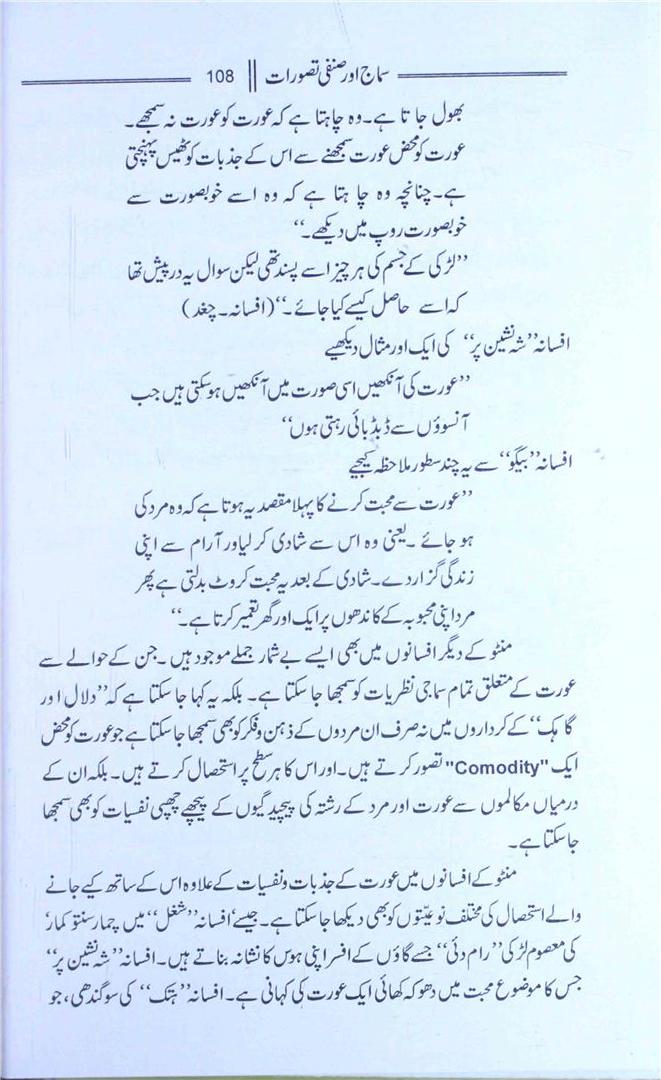 سماج اور صنفی تصورات || 108
بھول جاتا ہے۔ وہ چاہتا ہے کہ عورت کو عورت نہ سمجھے۔
عورت کو محض عورت سمجھنے سے اس کے جذبات کو ٹھیس پہنچتی
ہے۔ چنانچہ وہ چاہتا ہے کہ وہ اسے خوبصورت سے
خوبصورت روپ میں دیکھے۔‘‘
’’لڑکی کے جسم کی ہر چیز اسے پسند تھی لیکن سوال یہ درپیش تھا
کہ اسے حاصل کیسے کیا جائے۔‘‘ (افسانہ۔ چغد)
افسانہ ’’شہ نشین پر‘‘ کی ایک اور مثال دیکھیے
’’عورت کی آنکھیں اسی صورت میں آنکھیں ہو سکتی ہیں جب
آنسوؤں سے ڈبڈبائی رہتی ہوں‘‘
افسانہ ’’بیگو‘‘ سے یہ چند سطور ملاحظہ کیجیے
’’عورت سے محبت کرنے کا پہلا مقصد یہ ہوتا ہے کہ وہ مرد کی
ہو جائے ۔ یعنی وہ اس سے شادی کر لیاور آرام سے اپنی
زندگی گزار دے۔ شادی کے بعد یہ محبت کروٹ بدلتی ہے پھر
مرد اپنی محبوبہ کے کاندھوں پر ایک اور گھر تعمیر کرتا ہے۔‘‘
منٹو کے دیگر افسانوں میں بھی ایسے بے شمار جملے موجود ہیں ۔ جن کے حوالے سے
عورت کے متعلق تمام سماجی نظریات کو سمجھا جا سکتا ہے۔ بلکہ یہ کہا جا سکتا ہے کہ ’’دلال اور
گاہک‘‘ کے کرداروں میں نہ صرف ان مردوں کے ذہن و فکر کو بھی سمجھا جا سکتا ہے جو عورت کو محض
ایک "Comodity" تصور کرتے ہیں۔ اور اس کا ہر سطح پر استحصال کرتے ہیں۔ بلکہ ان کے
درمیاں مکالموں سے عورت اور مرد کے رشتہ کی پیچیدگیوں کے پیچھے چھپی نفسیات کو بھی سمجھا
جا سکتا ہے۔
منٹو کے افسانوں میں عورت کے جذبات و نفسیات کے علاوہ اس کے ساتھ کیے جانے
والے استحصال کی مختلف نوعیتوں کو بھی دیکھا جا سکتا ہے۔ جیسے ’افسانہ ’’شغل‘‘ میں چمار سنتو کمار‘
کی معصوم لڑکی ’’رام دئی‘‘ جسے گاؤں کے افسر اپنی ہوس کا نشانہ بناتے ہیں۔ افسانہ ’’شہ نشین پر‘‘
جس کا موضوع محبت میں دھوکہ کھائی ایک عورت کی کہانی ہے۔ افسانہ ’’ہتک‘‘ کی سوگندھی، جو